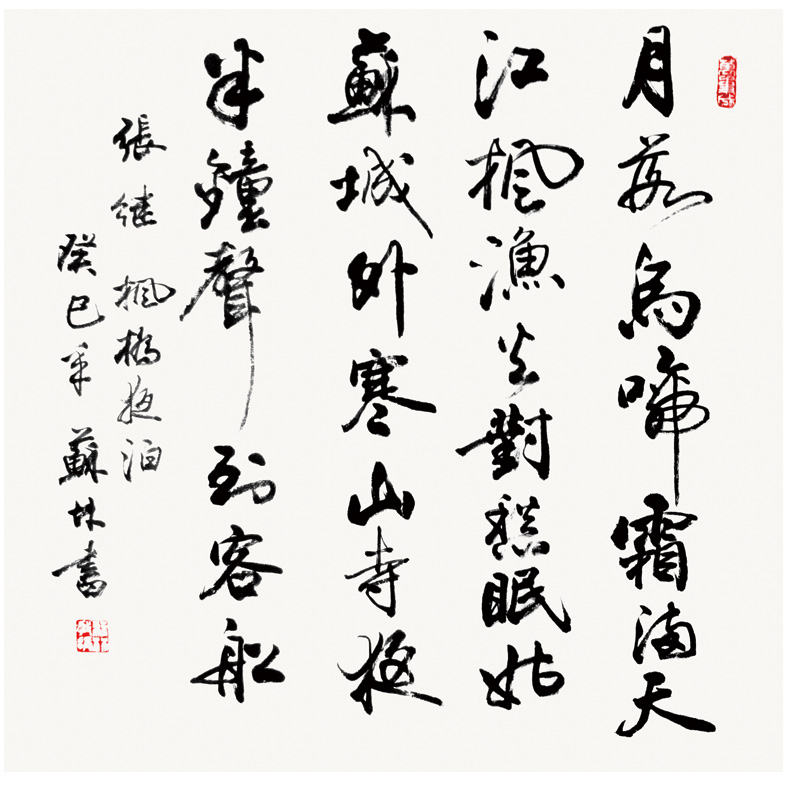 月落烏啼霜滿天
江楓漁火對愁眠姑
蘇城外寒山寺夜
半鐘聲到客船
張继楓橋夜泊
癸巳年蘇林書